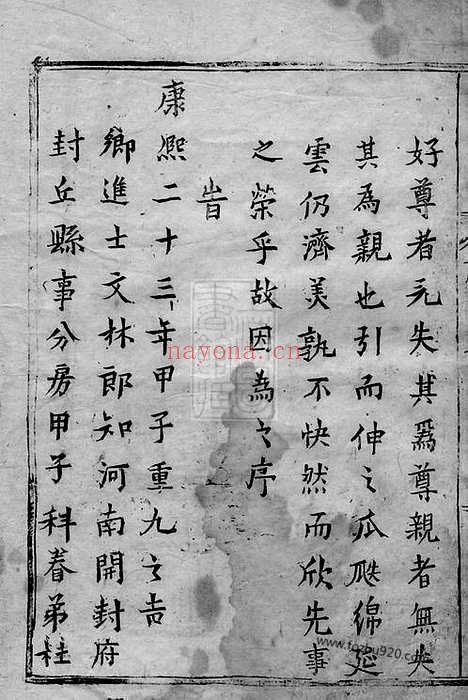 好尊者无失其爲尊親者無失
其為親也引而伸之瓜瓞綿延
雲仍濟美孰不快然而欣先事
之榮乎故因為之序
旹
康熙二十三年甲子重九之吉
鄉進士文林郎知河南開封府
封丘縣事分房甲子科眷弟杜
nayona.cn